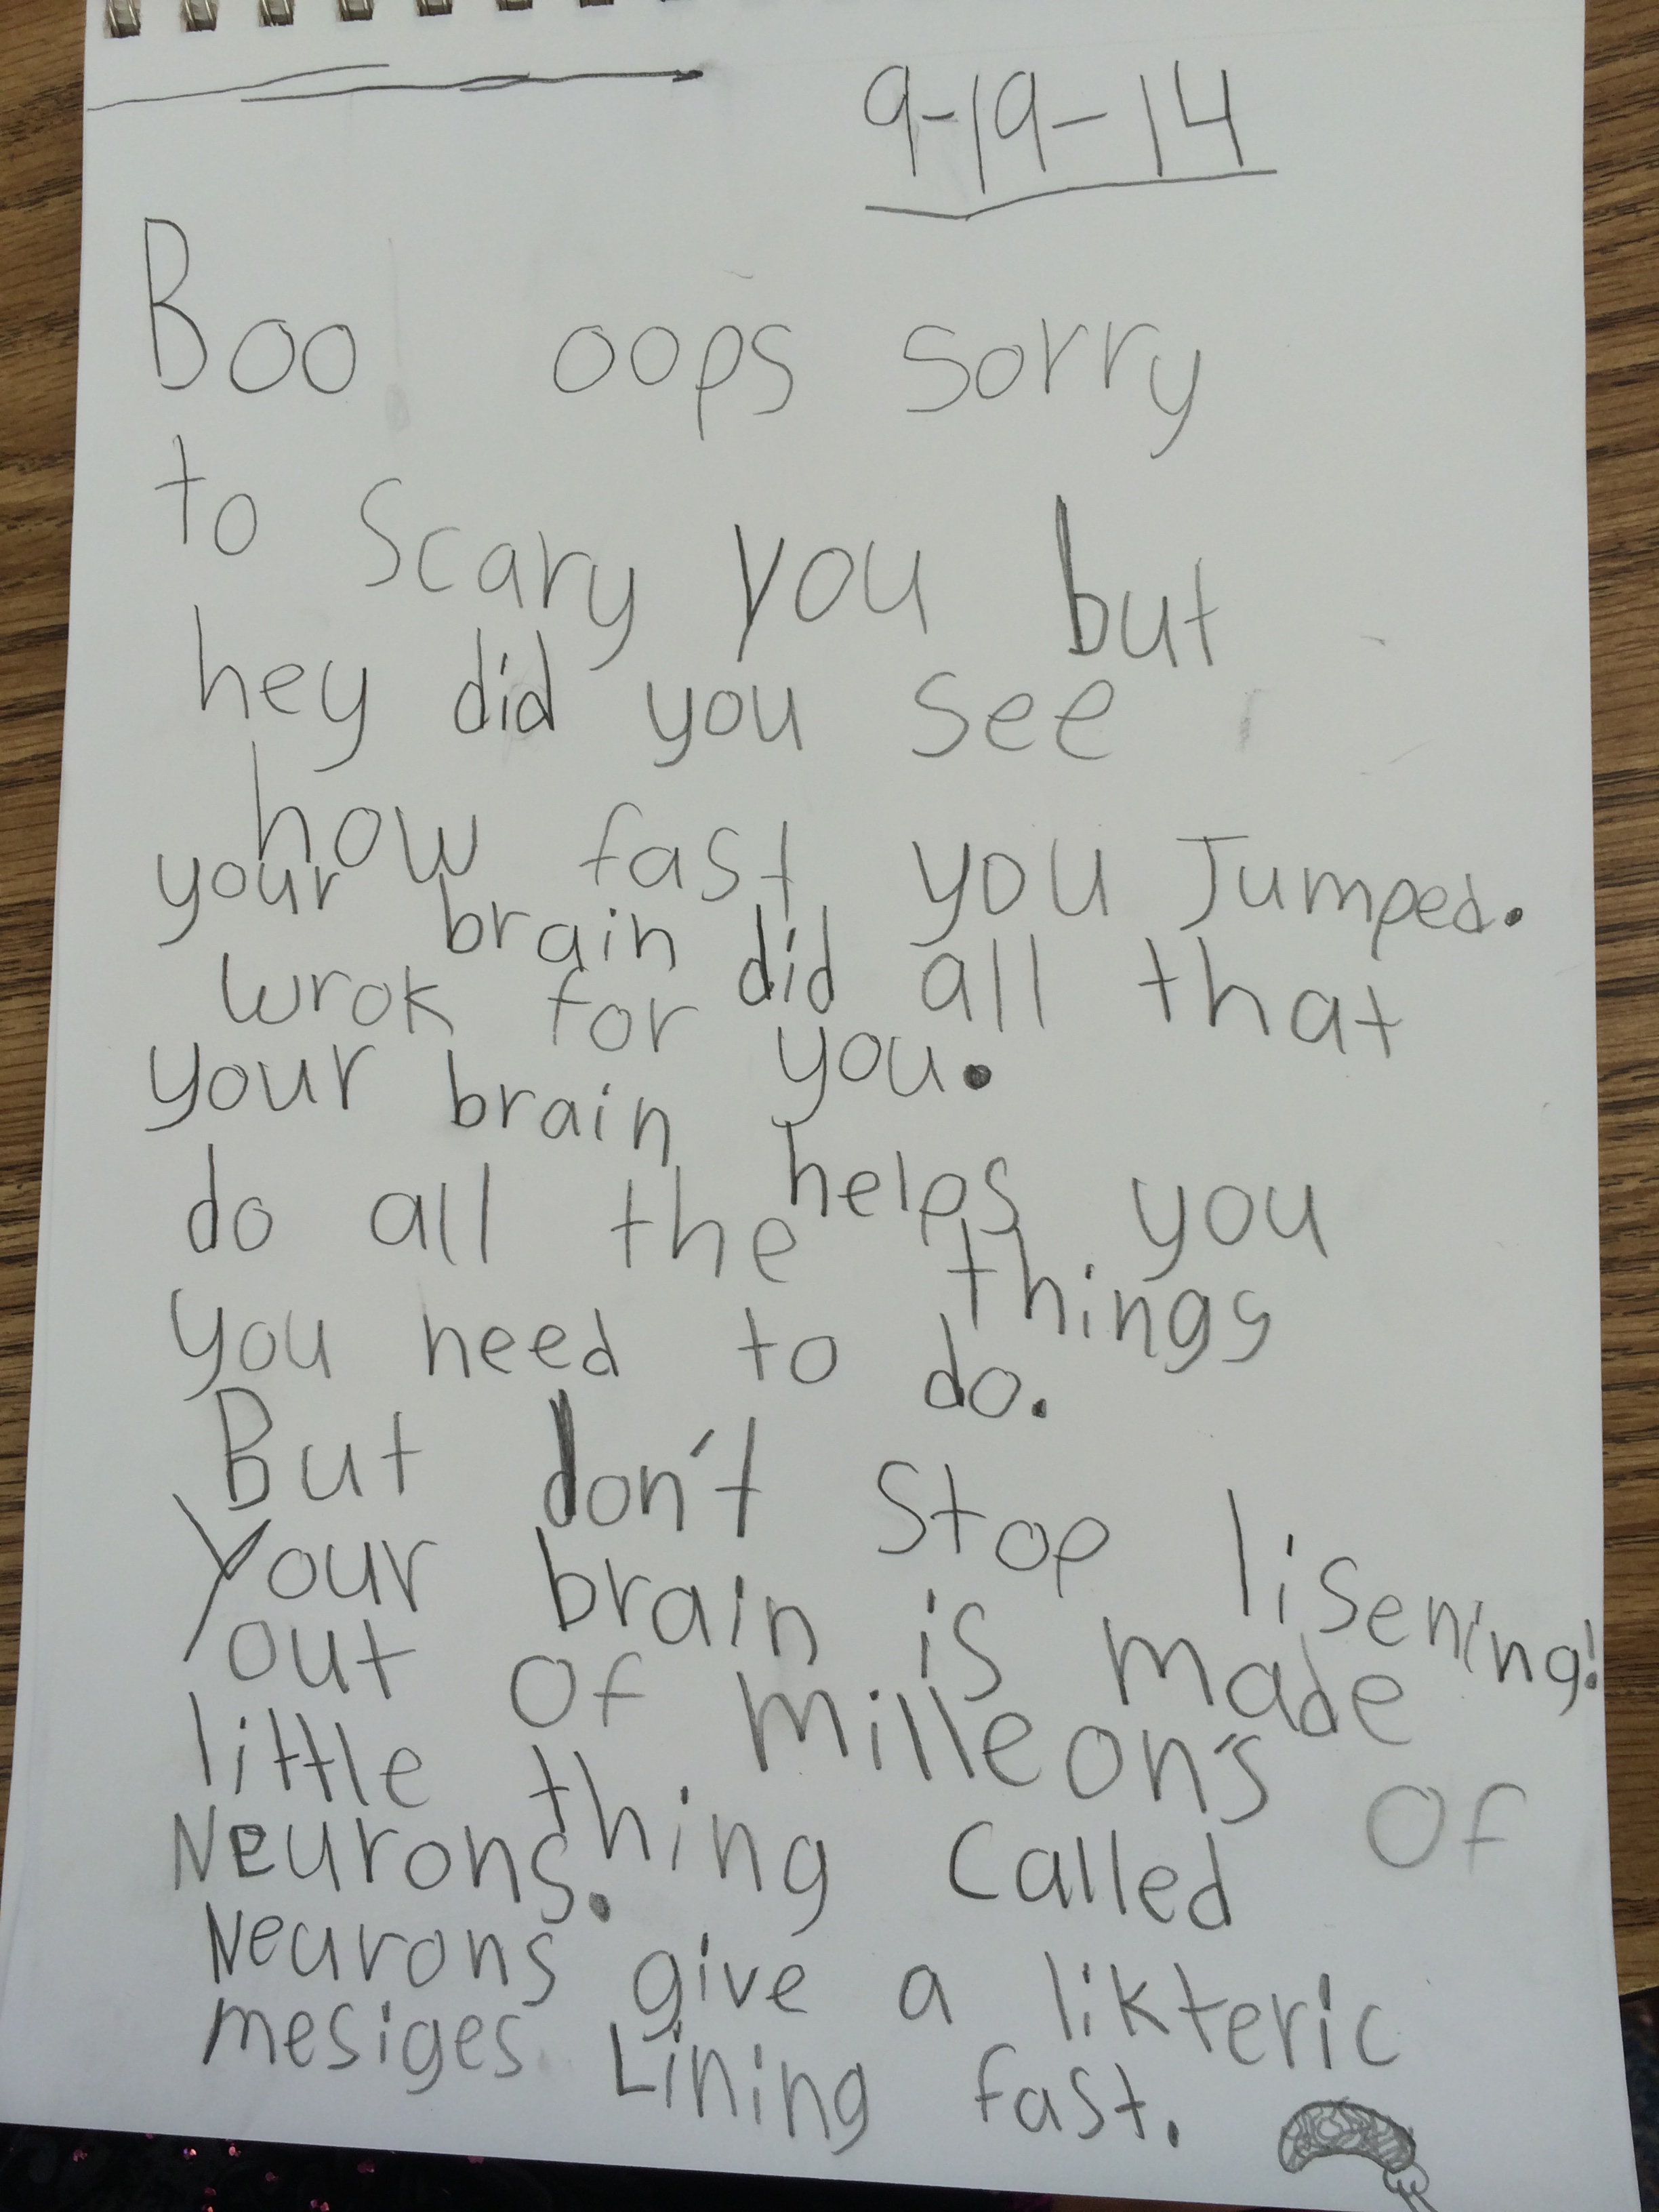 9-19-14
Boo oops sorry
to scary you but
hey did you see
how fast you Jumped.
your brain did all that
wrok for you.
your brain helps you
do all the things
you need to do.
But don't stop lisening!
Your brain is made
out of milleon's of
little thing called
Neurons.
Neurons give a likteric
mesiges Lining fast.